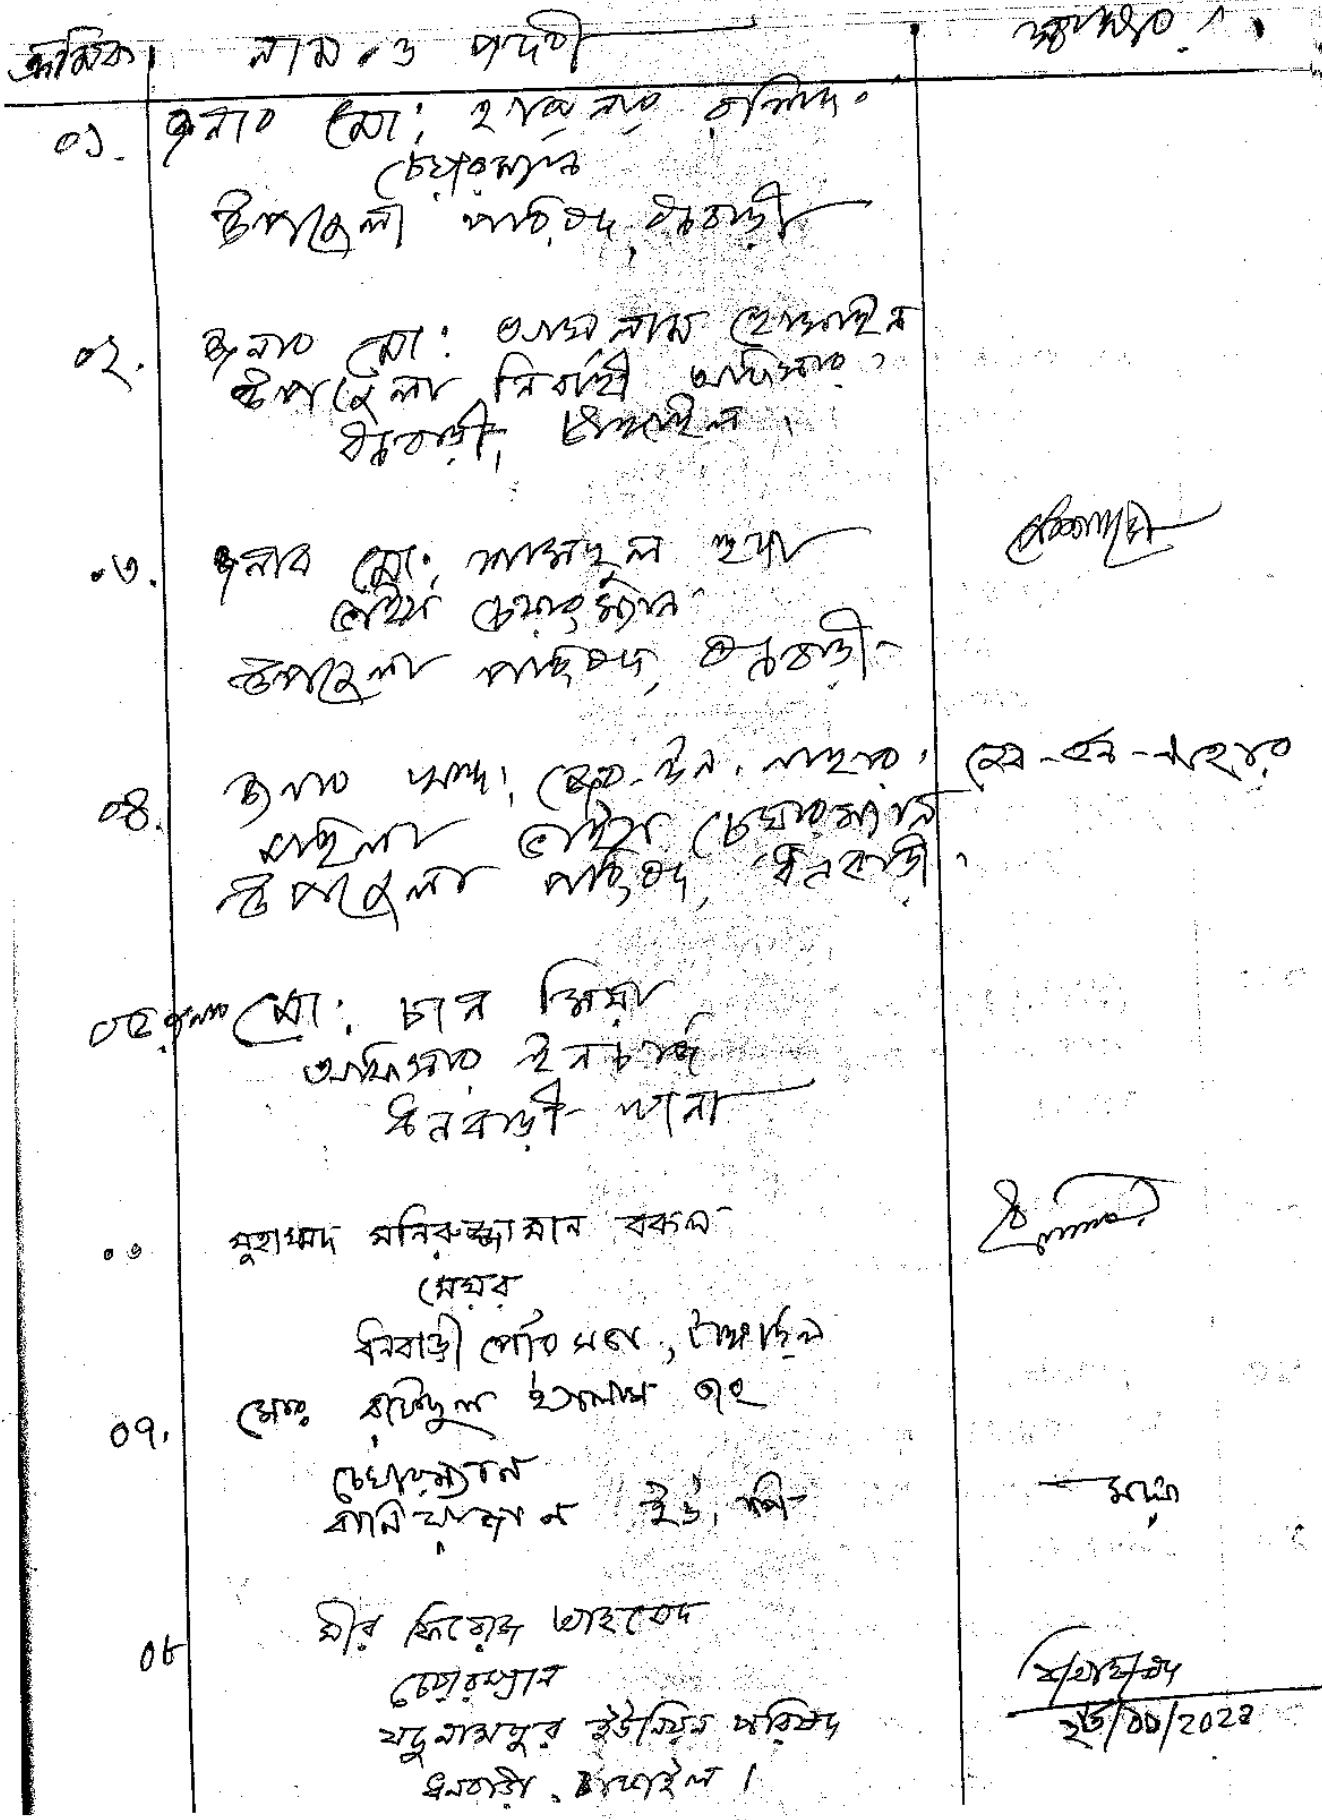 ক্রমিক। নাম ও পদবী স্বাক্ষর।
০১. জনাব মো: হারুনার রশিদ
চেয়ারম্যান
উপজেলা পরিষদ, ধনবাড়ী
০২. জনাব মো: আসলাম হোসাইন
উপজেলা নির্বাহী অফিসার,
ধনবাড়ী, টাঙ্গাইল।
০৩. জনাব মো:, হুদা
ভাইস চেয়ারম্যান
উপজেলা পরিষদ, ধনবাড়ী
০৪. জনাব মোছা: জেব-উন-নাহার। জেব-উন-নাহার
মহিলা ভাইস চেয়ারম্যান
উপজেলা পরিষদ, ধনবাড়ী।
০৫ জনাব মো: চান মিয়া
অফিসার ইনচার্জ
ধনবাড়ী থানা
০৬ মুহাম্মদ মনিরুজ্জামান বকল
মেয়র
ধনবাড়ী পৌরসভা, টাঙ্গাইল
০৭. মোঃ রফিদুল ইসলাম
চেয়ারম্যান
বানিয়াজান ইউ, পি
০৮ মীর ফিরোজ আহমেদ
চেয়ারম্যান
যদুনাথপুর ইউনিয়ন পরিষদ
ধনবাড়ী, টাঙ্গাইল।